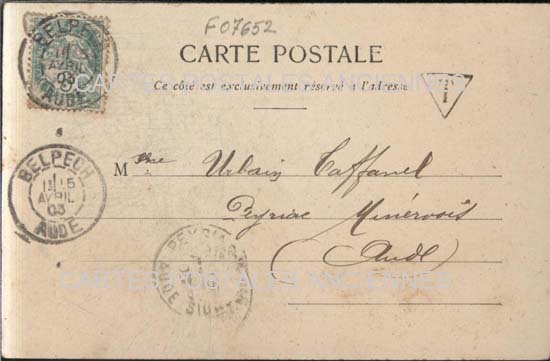 F07652
BELPECH
AVRIL
03
AUDE
CARTE POSTALE
Ce côté est exclusivement réservé à l'adresse
BELPECH
15
AVRIL
03
AUDE
Mme Urbain Taffanel
Peyriac Minervois
(Aude)
CARTES POSTALES ANCIENNES
CARTES POSTALES ANCIENNES